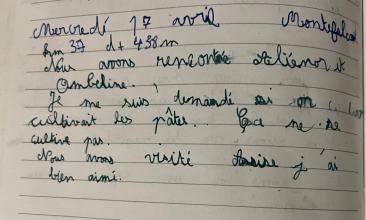 Mercredi 17 avril Montefalco
km 37 d+ 438 m
Nous avons rencontré Aliénor et
Ombeline.
Je me suis demandé si on
cultivait les pâtes. Ça ne se
cultive pas.
Nous avons visité Assise j'ai
bien aimé.